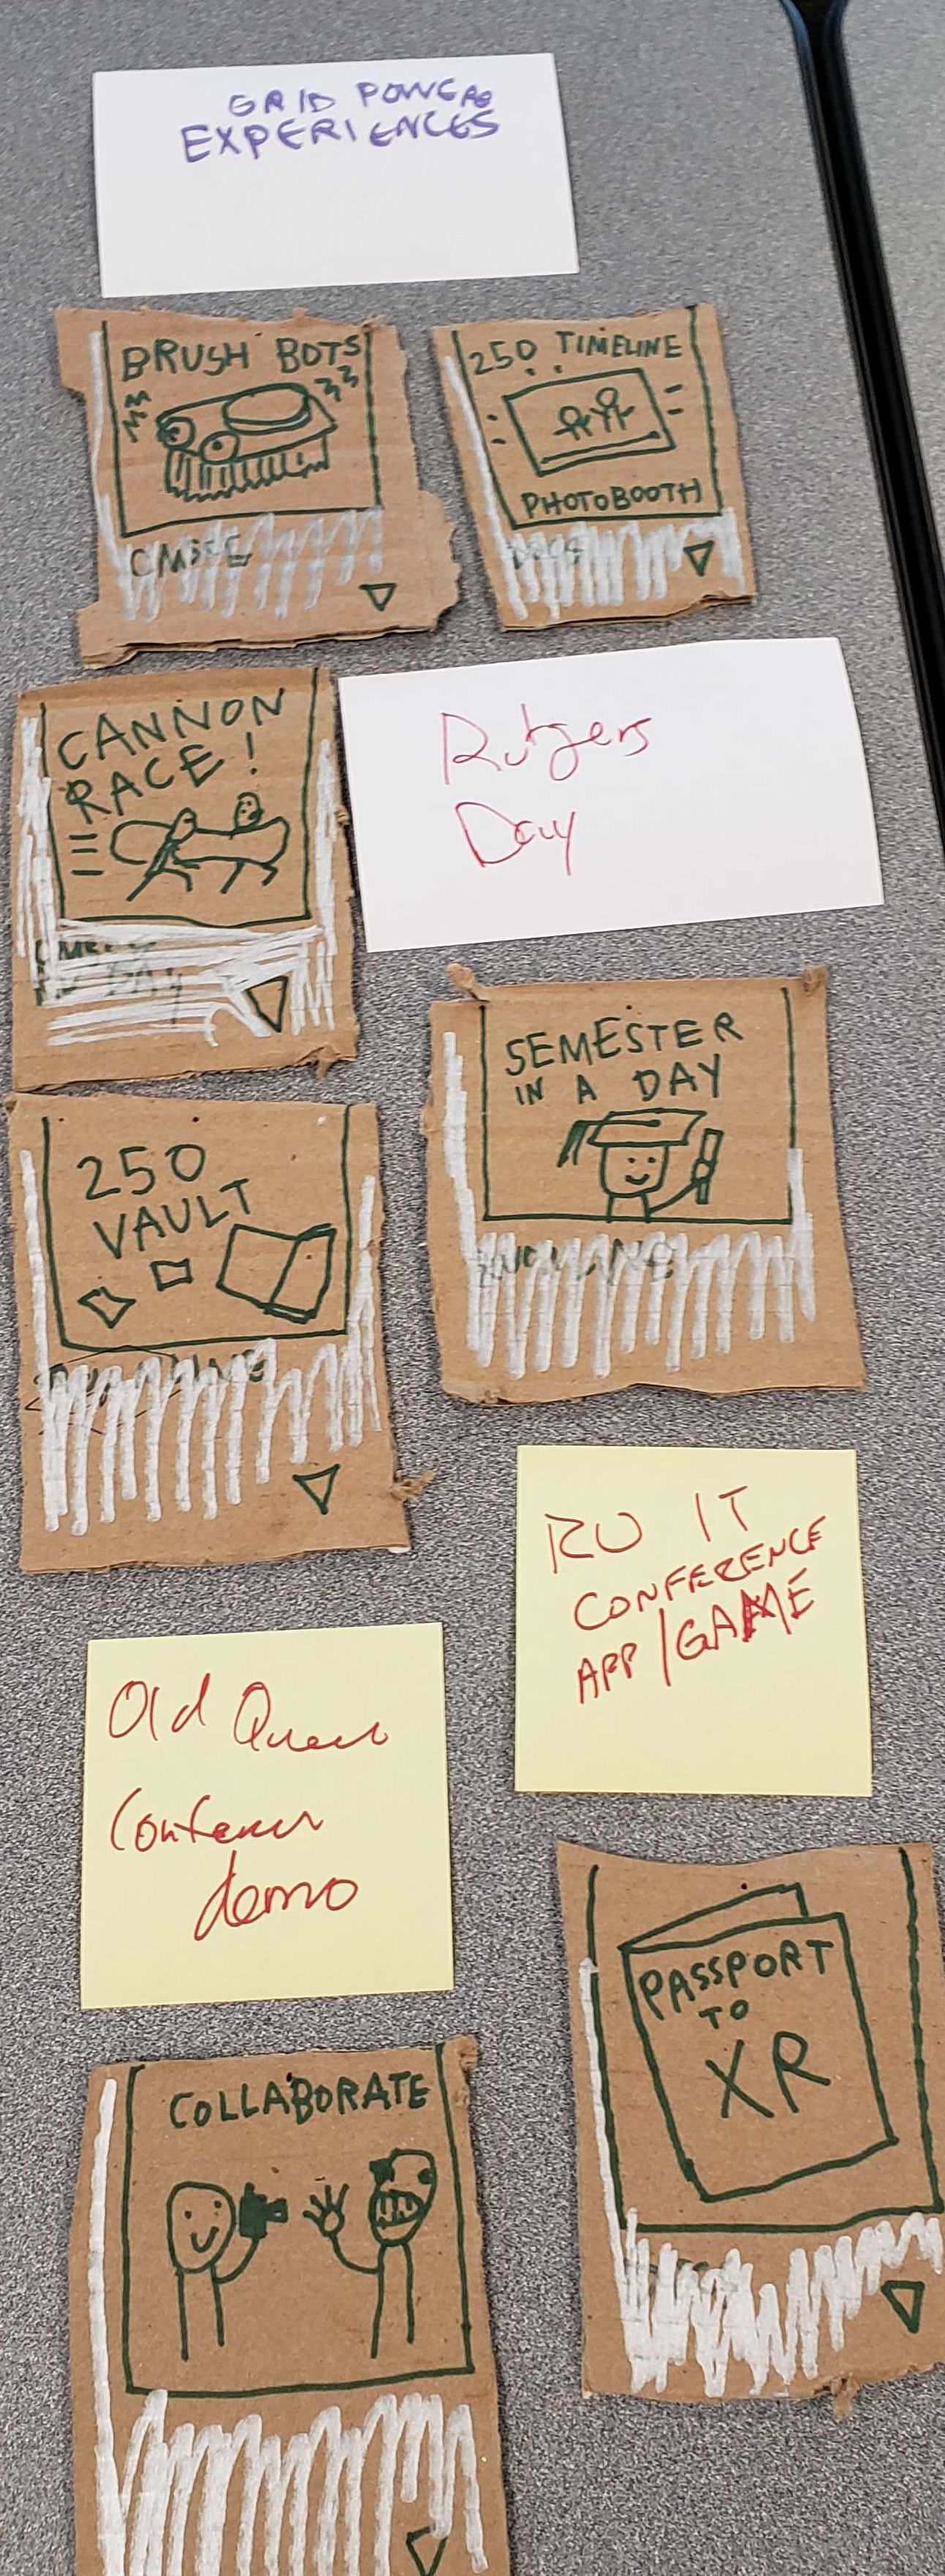 GRID POWERE
EXPERIENCES
BRUSH BOTS
250 TIMELINE
PHOTOBOOTH
CANNON
RACE!
Rutgers
Day
SEMESTER
IN A DAY
250
VAULT
RU IT
CONFERENCE
APP/GAME
Old
demo
PASSPORT
TO
XR
COLLABORATE